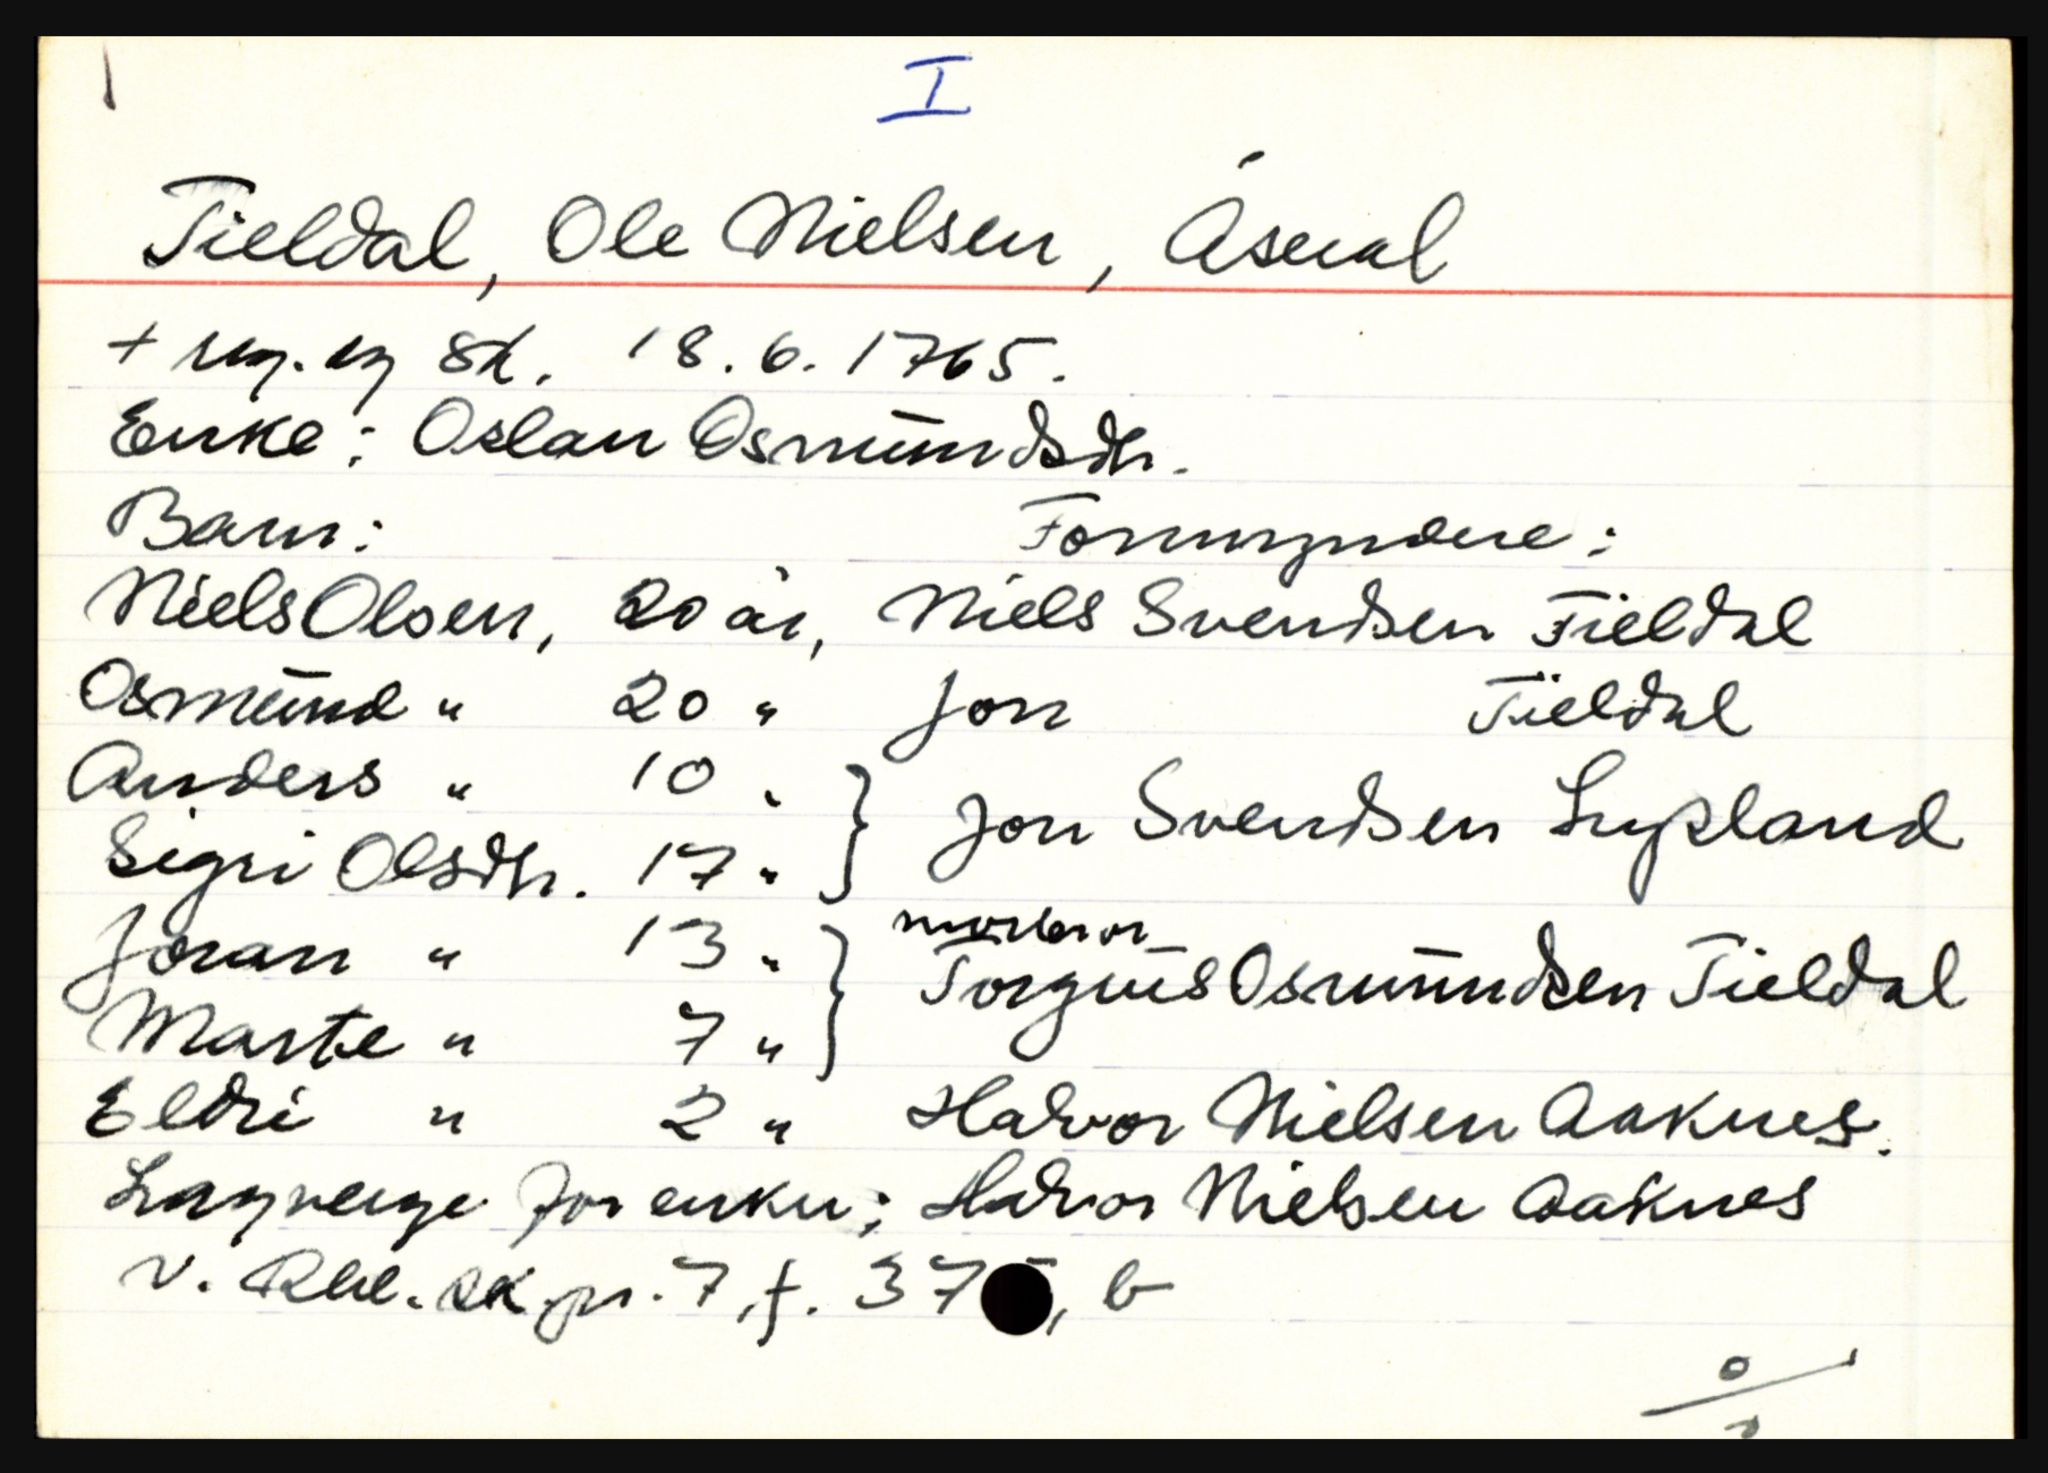 I
Fieldal, Ole Nielsen, Åseral
+ reg. og sk. 18.6.1765.
Enke: Oslau Osmundsdtr.
Barn: Formyndere:
Niels Olsen, 20 år, Niels Svendsen Fieldal
Osmund " 20 " Jon Fieldal
Anders " 10 " } Jon Svendsen Lypland
Sigri Olsdtr. 17 "
Joran " 13 " } morbror
Torgius Osmundsen Fieldal
Marte " 7 "
Eldri " 2 " Halvor Nielsen Aaknes.
Lagverge for enken: Halvor Nielsen Aaknes
v. Rbl. sk.pr. 7, f. 37 , b